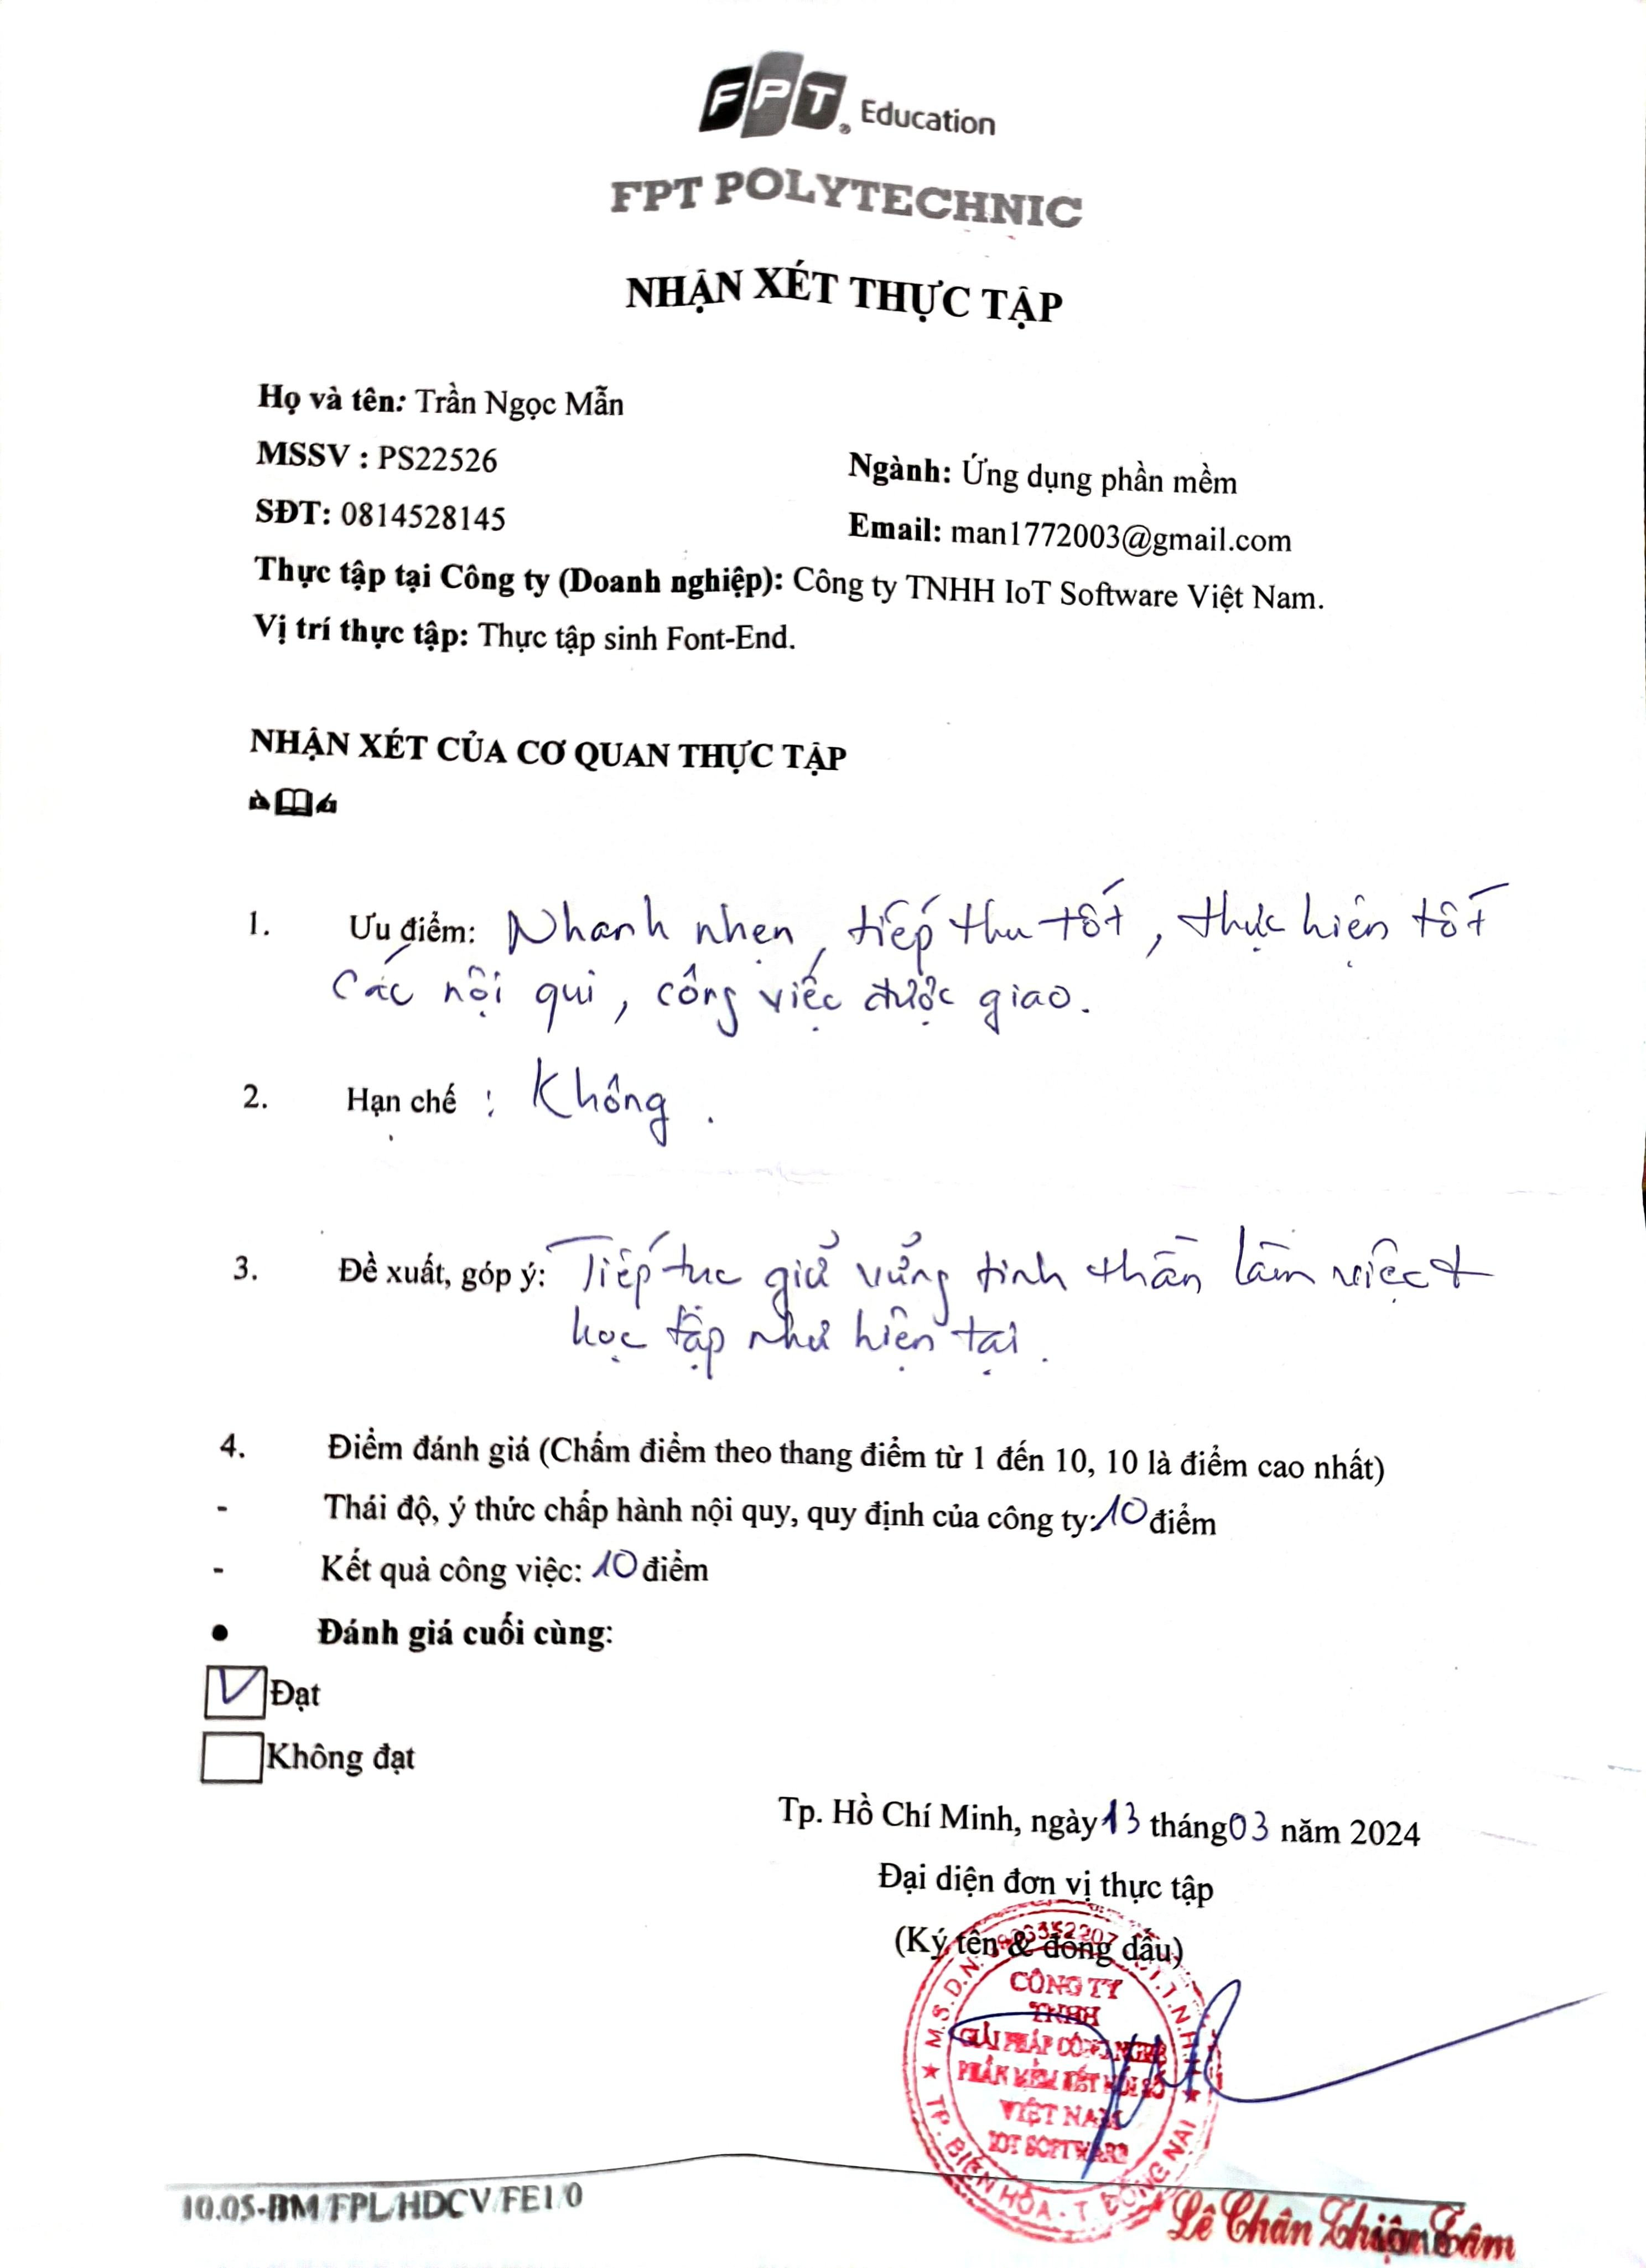 FPT Education
FPT POLYTECHNIC
NHẬN XÉT THỰC TẬP
Họ và tên: Trần Ngọc Mẫn
MSSV : PS22526
Ngành: Ứng dụng phần mềm
SĐT: 0814528145
Email: man1772003@gmail.com
Thực tập tại Công ty (Doanh nghiệp): Công ty TNHH IoT Software Việt Nam.
Vị trí thực tập: Thực tập sinh Font-End.
NHẬN XÉT CỦA CƠ QUAN THỰC TẬP
1. Ưu điểm: Nhanh nhẹn, tiếp thu tốt, thực hiện tốt
các nội qui, công việc được giao.
2. Hạn chế : Không.
3. Đề xuất, góp ý: Tiếp tục giữ vững tinh thần làm việc +
học tập như hiện tại.
4. Điểm đánh giá (Chấm điểm theo thang điểm từ 1 đến 10, 10 là điểm cao nhất)
- Thái độ, ý thức chấp hành nội quy, quy định của công ty: 10 điểm
- Kết quả công việc: 10 điểm
● Đánh giá cuối cùng:
Đạt
Không đạt
Tp. Hồ Chí Minh, ngày 13 tháng 03 năm 2024
Đại diện đơn vị thực tập
(Ký tên & đóng dấu)
M.S.D.N:
CÔNG TY
TNHH
GIẢI PHÁP CÔNG NGHỆ
PHẦN MỀM KẾT NỐI SỐ
VIỆT NAM
IOT SOFTWARE
TP. BIÊN HÒA - T. ĐỒNG NAI
Lê Chân Thiện Tâm
10.05-BM/FPL/HDCV/FE1/0